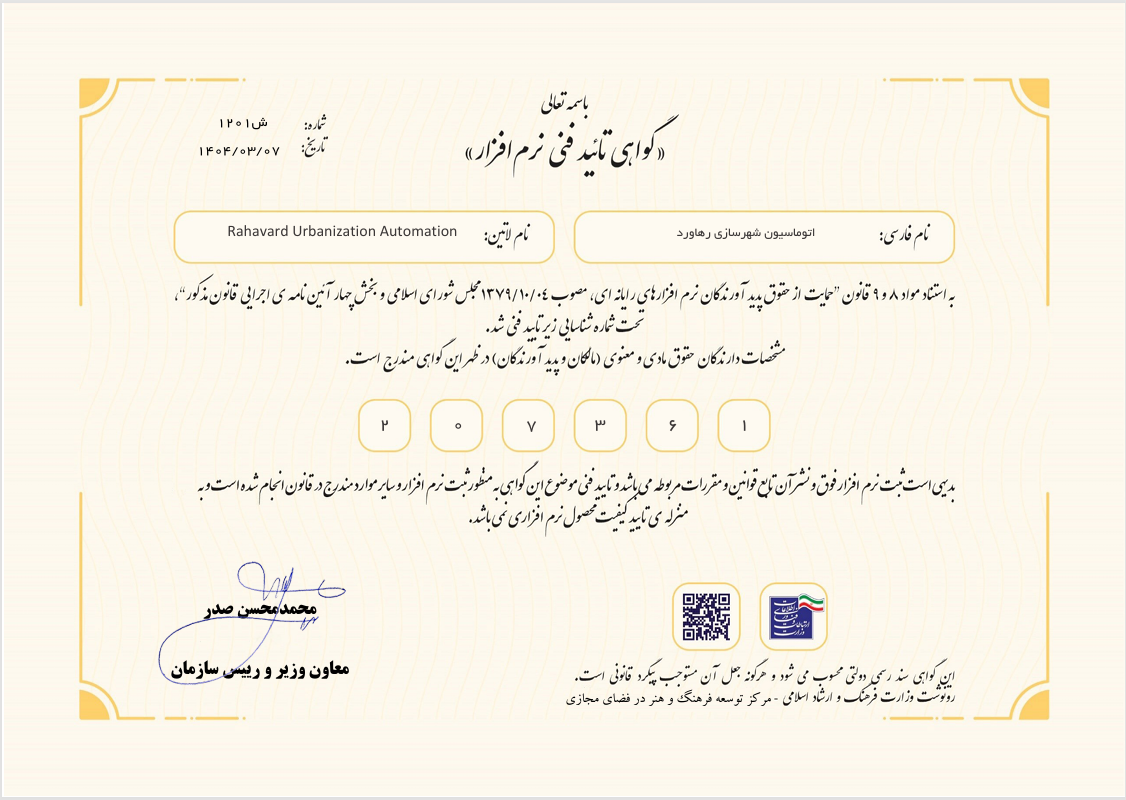 باسمه تعالی
«گواهی تائید فنی نرم افزار»
شماره: ش۱۲۰۱
تاریخ: ۱۴۰۴/۰۳/۰۷
نام فارسی: اتوماسیون شهرسازی رهاورد
نام لاتین: Rahavard Urbanization Automation
به استناد مواد ۸ و ۹ قانون "حمایت از حقوق پدید آورندگان نرم افزارهای رایانه ای، مصوب ۱۳۷۹/۱۰/۰٤ مجلس شورای اسلامی و بخش چهار آئین نامه ی اجرایی قانون مذکور"،
تحت شماره شناسایی زیر تایید فنی شد.
مشخصات دارندگان حقوق مادی و معنوی (مالکان و پدید آورندگان) در ظهر این گواهی مندرج است.
۲ ۰ ۷ ۳ ۶ ۱
بدیهی است ثبت نرم افزار فوق و نشر آن تابع قوانین و مقررات مربوطه می باشد و تایید فنی موضوع این گواهی به منظور ثبت نرم افزار و سایر موارد مندرج در قانون انجام شده است و به
منزله ی تایید کیفیت محصول نرم افزاری نمی باشد.
محمدمحسن صدر
معاون وزیر و رییس سازمان
وزارت ارتباطات و فناوری اطلاعات
این گواهی سند رسمی دولتی محسوب می شود و هرگونه جعل آن مستوجب پیگرد قانونی است.
رونوشت وزارت فرهنگ و ارشاد اسلامی - مرکز توسعه فرهنگ و هنر در فضای مجازی